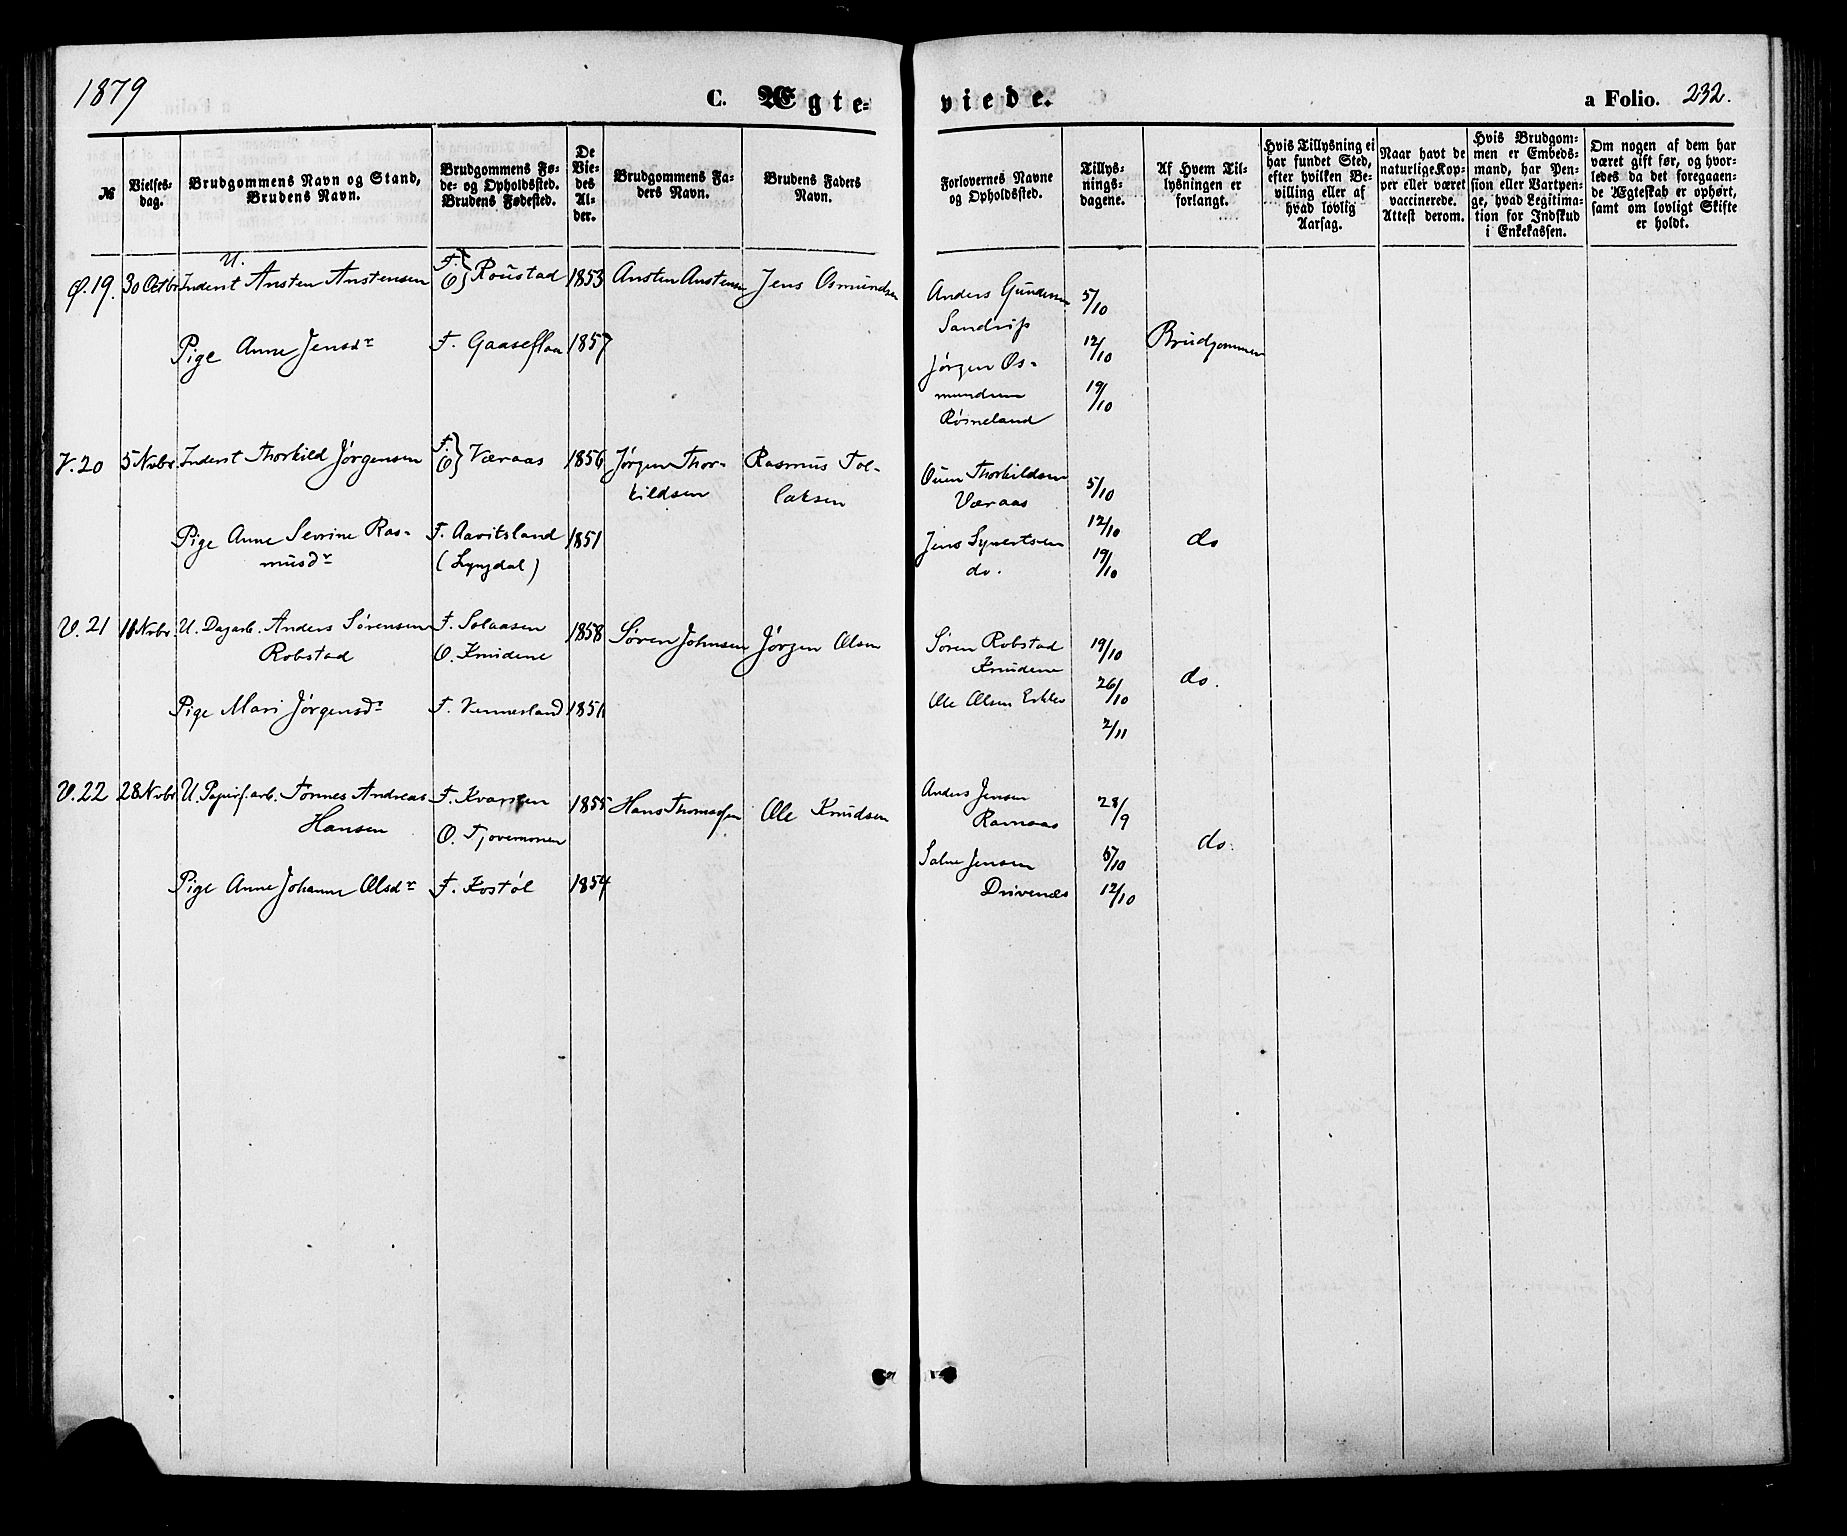 1879
C. Ægte-
viede.
a Folio. 232.
№
Vielses-
dag.
Brudgommens Navn og Stand,
Brudens Navn.
Brudgommens Fø-
de- og Opholdssted.
Brudens Fødested.
De
Vie-
des
Al-
der.
Brudgommens Fa-
ders Navn.
Brudens Faders
Navn.
Forlovernes Navne
og Opholdssted.
Tillys-
nings-
dagene.
Af Hvem Til-
lysningen er
forlangt.
Hvis Tillysning ei
har fundet Sted,
efter hvilken Be-
villing eller af
hvad lovlig
Aarsag.
Naar havt de
naturlige Kop-
per eller været
vaccinerede.
Attest derom.
Hvis Brudgom-
men er Embeds-
mand, har Pen-
sion eller Vartpen-
ge, hvad Legitima-
tion for Indskud
i Enkekassen.
Om nogen af dem har
været gift før, og hvor-
ledes da det foregaaen-
de Ægteskab er ophørt,
samt om lovligt Skifte
er holdt.
Ø. 19. 30 Octbr U. Inderst Ansten Anstensen F. O } Roustad 1853 Ansten Anstensen Jens Osmundsen
Anders Gundersen 5/10
Sandrip
Pige Anne Jensdr F. Gaaseflaa 1857
12/10 Brudgommen
Jørgen Os-
mundsen 19/10
Røsneland
V. 20 5 Nvbr. Inderst Thorkild Jørgensen F. O } Væraas 1856 Jørgen Thor- Rasmus Tol-
kildsen laksen
Ouen Thorkildsen 5/10
Væraas
Pige Anne Sevrine Ras- F. Aavitsland 1851
musdr (Lyngdal)
12/10
Jens Syvertsen do
do. 19/10
V. 21 11 Nvbr. U. Dagarb. Anders Sørensen F. Solaasen 1858 Søren Johnsen Jørgen Olsen
Robstad O. Knudene
Søren Robstad 19/10
Knudene
Pige Mari Jørgensd​r F. Vennesland 1851
Ole Olsen 26/10 do.
2/11
V. 22 28 Nvbr U. Papirf.arb. Tønnes Andreas F. Kvarsten 1855 Hans Thomassen Ole Knudsen
Hansen O. Tjovemonen
Anders Jensen 28/9
Ramaas
Pige Anne Johanne Olsdr F. Kostøl 1854
Salve Jensen 5/10 do.
Drivenæs 12/10